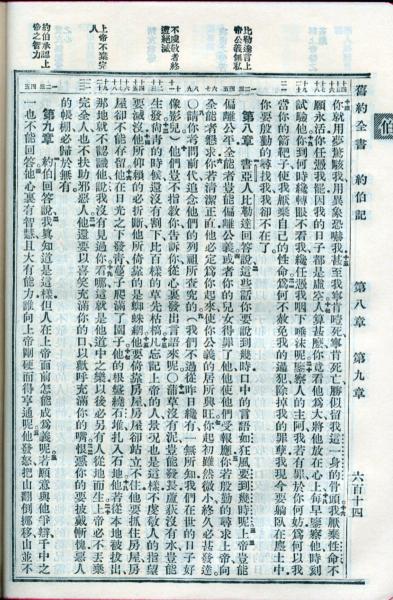 舊約全書 約伯記 第八章 第九章 六百十四
伯
比勒達言上
帝公義無私
不虔敬者終
遭絕滅
上帝不棄完
人
約伯承認上
帝之智力
你就用夢驚駭我用異象恐嚇我甚至我寧肯噎死寧肯死亡勝似留我這一身的骨頭我厭棄性命不
願永活你任憑我罷因我的日子都是虛空人算甚麼你竟看他為大將他放在心上每早鑒察他時刻
試驗他你到何時纔轉眼不看我纔任憑我咽下唾沫呢鑒察人的主阿我若有罪於你何妨為何以我
當你的箭靶子使我厭棄自己的性命為何不赦免我的過犯除掉我的罪孽我現今要躺臥在塵土中
你要殷勤的尋找我我卻不在了
第八章 書亞人比勒達回答說這些話你要說到幾時口中的言語如狂風要到幾時呢上帝豈能
偏離公平全能者豈能偏離公義或者你的兒女得罪了他他使他們受報應你若殷勤的尋求上帝向
全能者懇求你若清潔正直他必定為你起來使你公義的居所興旺你起初雖然微小終久必甚發達
○請你考問前代追念他們的列祖所查究的（我們不過從昨日纔有一無所知我們在世的日子好
像影兒）他們豈不指教你告訴你從心裏發出言語來呢○蒲草沒有泥豈能發長蘆荻沒有水豈能
生發尚青的時候還沒有割下比百樣的草先枯槁凡忘記上帝的人景況也是這樣不虔敬人的指望
要滅沒他所仰賴的必折斷他所倚靠的是蜘蛛網他要倚靠房屋房屋卻站立不住他要抓住房屋房
屋卻不能存留他在日光之下發青蔓子爬滿了園子他的根盤繞石堆扎入石地他若從本地被拔出
那地就不認識他說我沒有見過你看哪這就是他道中之樂以後必另有人從地而生上帝必不丟棄
完全人也不扶助邪惡人他還要以喜笑充滿你的口以歡呼充滿你的嘴恨惡你的要披戴慚愧惡人
的帳棚必歸於無有
第九章 約伯回答說我真知道是這樣但人在上帝面前怎能成為義呢若願意與他爭辯千中之
一也不能回答他心裏有智慧且大有能力誰向上帝剛硬而得亨通呢他發怒把山翻倒挪移山並不